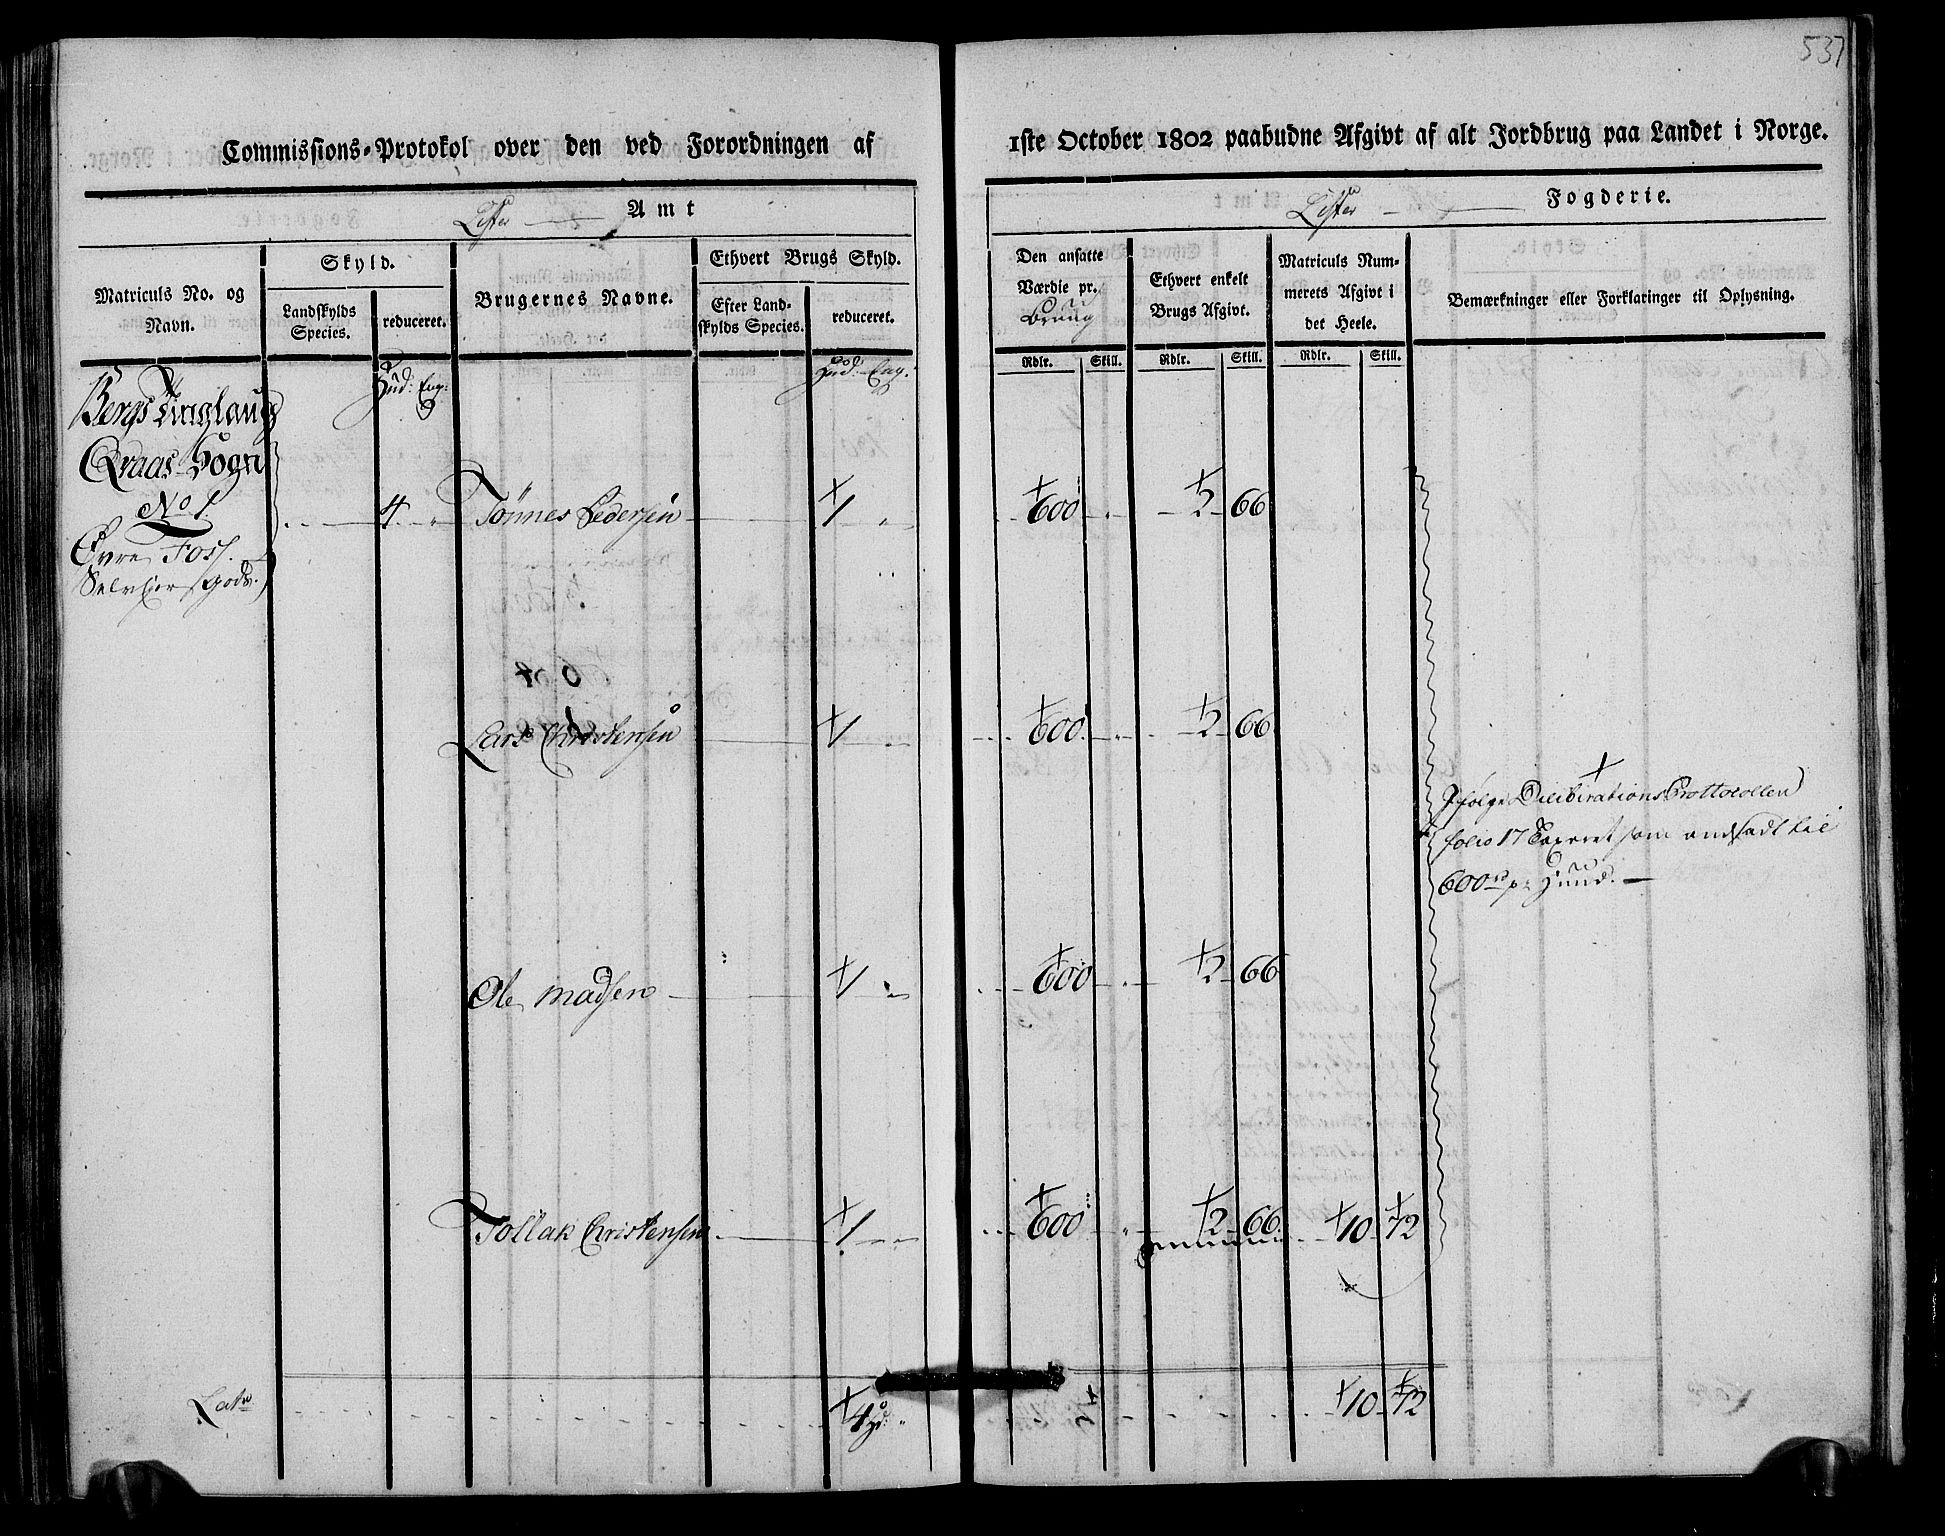 537
Commissions-Protokol over den ved Forordningen af
1ste October 1802 paabudne Afgivt af alt Jordbrug paa Landet i Norge.
Lister Amt
Lister Fogderie.
Matriculs No. og Navn.
Skyld.
Landskylds Species.
reduceret.
Brugernes Navne.
Ethvert Brugs Skyld.
Efter Landskylds Species.
reduceret.
Den ansatte Værdie pr. Bruug
Ethvert enkelt Brugs Afgivt.
Matriculs Nummerets Afgivt i det Heele.
Bemærkninger eller Forklaringer til Oplysning.
Rdlr. Skill. Rdlr. Skill. Rdlr. Skill.
Hud: Eng:
Hud: Eng:
Bergs Tinglaug
Qvaas Sogn
No 1.
Øvre Foss.
Selveier Gods.
4 " Tønnes Pedersen + 1 " + 600 + 2 66
Lars Christensen + 1 + 600 + 2 66
Ole Madsen + 1 + 600 + 2 66
Tollak Christensen + 1 + 600 + 2 66 + 10 + 72
+
Ifølge Deliberations Prottocollen
folio 17 Taxeret som andsadt til
600 rd pr Huud.
Lat. + 4 hd: " + 10 + 72